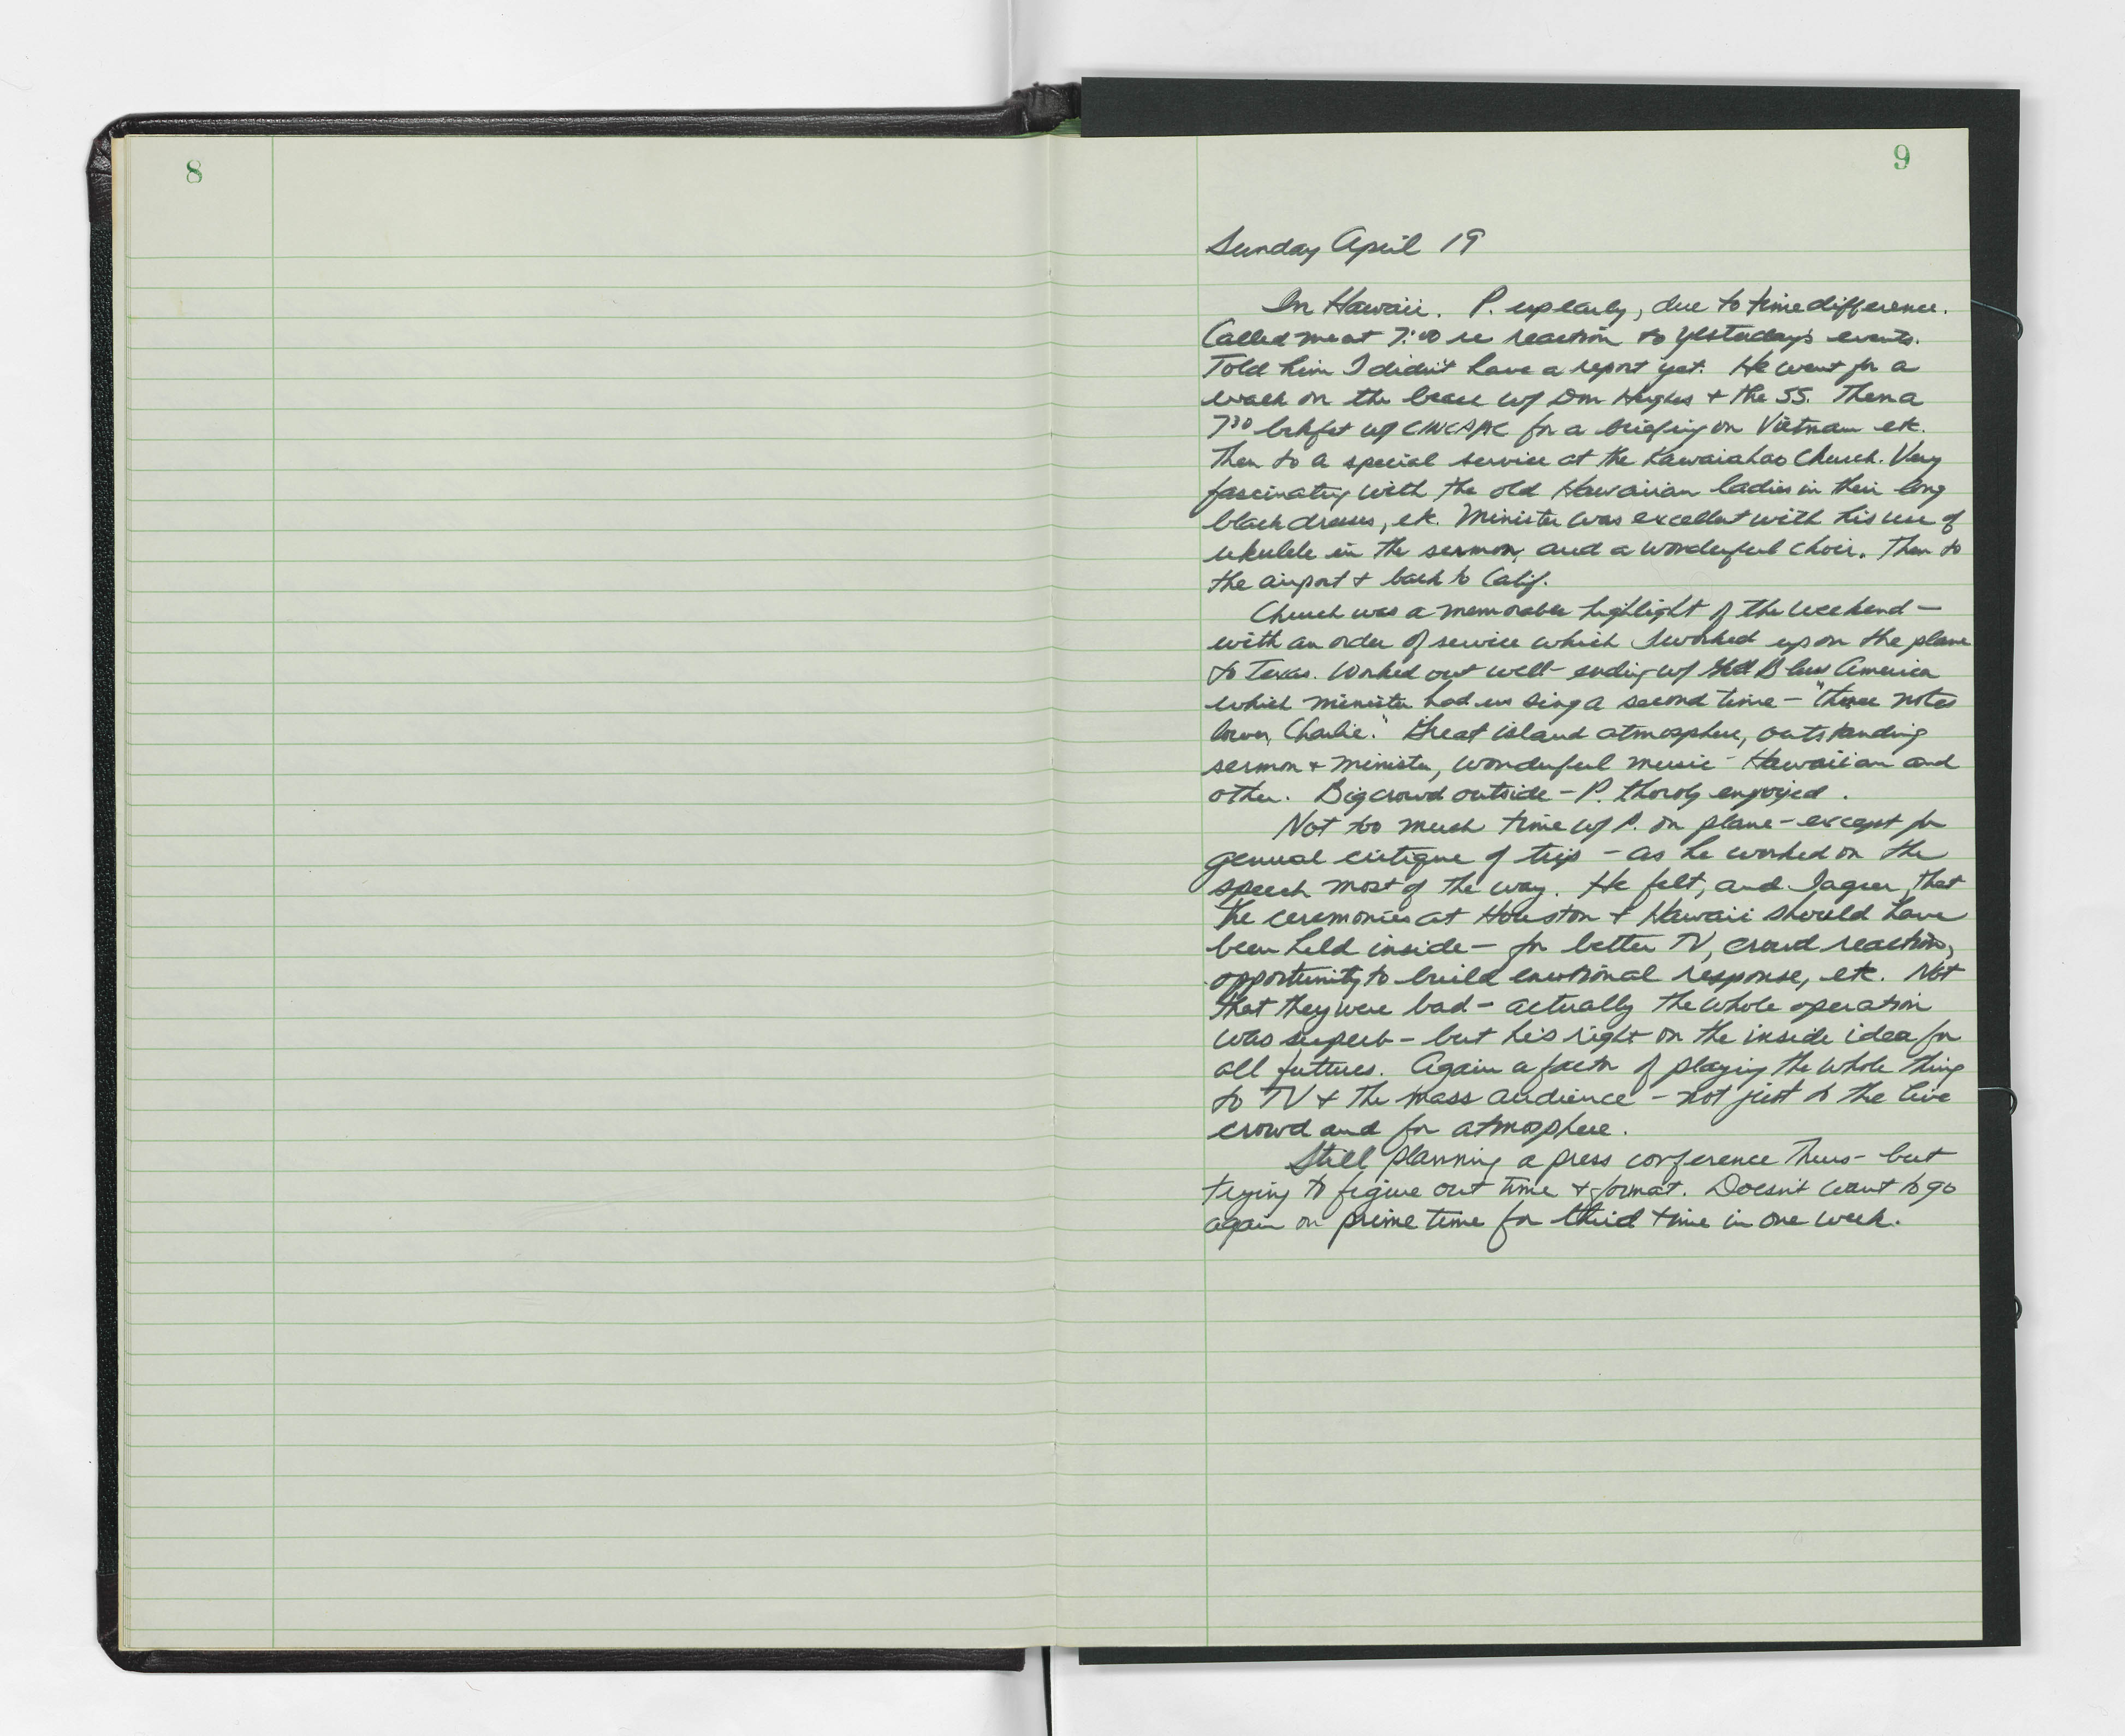 8
9
Sunday April 19
In Hawaii. P. up early, due to time difference.
Called me at 7:00 re reaction to yesterday's events.
Told him I didn't have a report yet. He went for a
walk on the beach w/ Don Hughes + the SS. Then a
7³⁰ brkfst w/ CINCPAC for a briefing on Vietnam etc.
Then to a special service at the Kawaiahao Church. Very
fascinating with the old Hawaiian ladies in their long
black dresses, etc. Minister was excellent with his use of
ukulele in the sermon, and a wonderful choir. Then to
the airport + back to Calif.
Church was a memorable highlight of the weekend –
with an order of service which I worked up on the plane
to Texas. Worked out well – ending w/ God Bless America
which minister had us sing a second time – "three notes
lower, Charlie." Great island atmosphere, outstanding
sermon + minister, wonderful music – Hawaiian and
other. Big crowd outside – P. thoroly enjoyed.
Not too much time w/ P. on plane – except for
general critique of trip – as he worked on the
speech most of the way. He felt, and I agree, that
the ceremonies at Houston + Hawaii should have
been held inside – for better TV, crowd reaction,
opportunity to build emotional response, etc. Not
that they were bad – actually the whole operation
was superb – but he's right on the inside idea for
all futures. Again a factor of playing the whole thing
to TV + the mass audience – not just to the live
crowd and for atmosphere.
Still planning a press conference Thurs – but
trying to figure out time + format. Doesn't want to go
again on prime time for third time in one week.